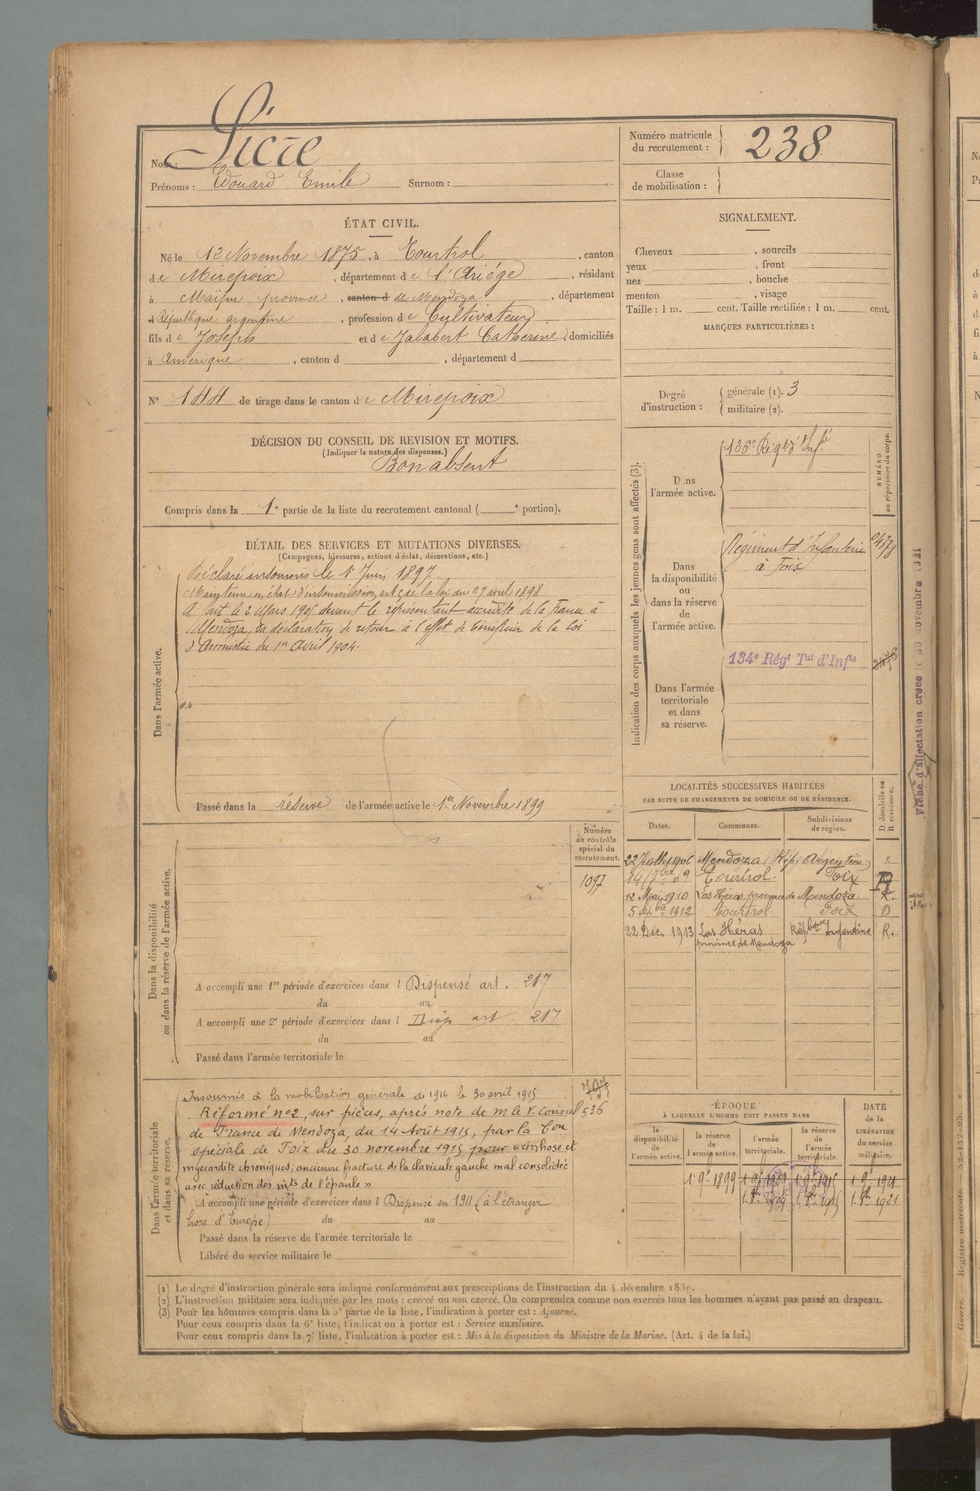 Nom : Sicre
Prénoms : Edouard Emile Surnom :
Numéro matricule du recrutement : 238
Classe de mobilisation :
ÉTAT CIVIL.
Né le 12 Novembre 1875, à Tourtrol, canton
de Mirepoix, département de l'Ariége, résidant
à Maïpu province, canton d de Mendoza, département
d République argentine, profession de Cultivateur
fils de Joseph et de Jalabert Catherine, domiciliés
à Amérique, canton d , département d
N° 144 de tirage dans le canton de Mirepoix
SIGNALEMENT.
Cheveux , sourcils
yeux , front
nez , bouche
menton , visage
Taille : 1 m. cent. Taille rectifiée : 1 m. cent.
MARQUES PARTICULIÈRES :
Degré d'instruction : générale (1). 3
militaire (2).
DÉCISION DU CONSEIL DE REVISION ET MOTIFS.
(Indiquer la nature des dispenses.)
Bon absent
Compris dans la 1e partie de la liste du recrutement cantonal ( e portion).
DÉTAIL DES SERVICES ET MUTATIONS DIVERSES.
(Campagnes, blessures, actions d'éclat, décorations, etc.)
Dans l'armée active.
Déclaré insoumis le 1er Juin 1897.
Maintenu en état d'insoumission, art. 2 de la loi du 27 avril 1898
A fait le 2 Mars 1905 devant le représentant accrédité de la France à
Mendoza, sa déclaration de retour à l'effet de bénéficier de la loi
d'Amnistie du 1er Avril 1904.
Passé dans la réserve de l'armée active le 1er Novembre 1899
Indication des corps auxquels les jeunes gens sont affectés (3).
NUMÉRO au répertoire du corps.
Dans l'armée active.
136e Régt d'Infie
Dans la disponibilité ou dans la réserve de l'armée active.
Régiment d'Infanterie
à Foix
Dans l'armée territoriale et dans sa réserve.
134e Régt Tal d'Infie
Fiche d'affectation créée le 30 novembre
LOCALITÉS SUCCESSIVES HABITÉES
PAR SUITE DE CHANGEMENTS DE DOMICILE OU DE RÉSIDENCE.
D domicile ou R résidence.
Dates. Communes. Subdivisions de région.
22 Juillet 1906 Mendoza (Rép. Argentine)
14 7bre 09 Tourtrol Foix
12 Mai 1910 Las Héras, province de Mendoza R.
5 1912 Tourtrol Foix D
22 Déc. 1913 Las Héras Républiqe Argentine R.
province de Mendoza
Dans la disponibilité ou dans la réserve de l'armée active.
Numéro au contrôle spécial du recrutement.
1097
A accompli une 1re période d'exercices dans l Dispensé art. 217
du au
A accompli une 2e période d'exercices dans l Disp art 217
du au
Passé dans l'armée territoriale le
Dans l'armée territoriale et dans sa réserve.
Insoumis à la mobilisation générale de 1914 le 30 avril 1915
536
Réformé n°2, sur pièces, après note de M. le V. Consul
de France de Mendoza, du 14 Août 1915, par la Con
spéciale de Foix du 30 novembre 1915 pour « cirrhose et
myocardite chroniques, ancienne fracture de la clavicule gauche mal consolidée
avec réduction des mts de l'épaule »
A accompli une période d'exercices dans l Dispensé en 1911 (à l'étranger
hors d'Europe) du au
Passé dans la réserve de l'armée territoriale le
Libéré du service militaire le
ÉPOQUE
À LAQUELLE L'HOMME DOIT PASSER DANS
DATE de la LIBÉRATION du service militaire.
la disponibilité de l'armée active. la réserve de l'armée active. l'armée territoriale. la réserve de l'armée territoriale.
1. 9e 1899 1. 9e 1909 1. 9e 1915 1. 9e 1921
1. 8e 1909 1. 8e 1915 1. 8e 1921
(1) Le degré d'instruction générale sera indiqué conformément aux prescriptions de l'instruction du 4 décembre 1889.
(2) L'instruction militaire sera indiquée par les mots : exercé ou non exercé. On comprendra comme non exercés tous les hommes n'ayant pas passé au drapeau.
(3) Pour les hommes compris dans la 5e partie de la liste, l'indication à porter est : Ajourné.
Pour ceux compris dans la 6e liste, l'indication à porter est : Service auxiliaire.
Pour ceux compris dans la 7e liste, l'indication à porter est : Mis à la disposition du Ministre de la Marine. (Art. 4 de la loi.)